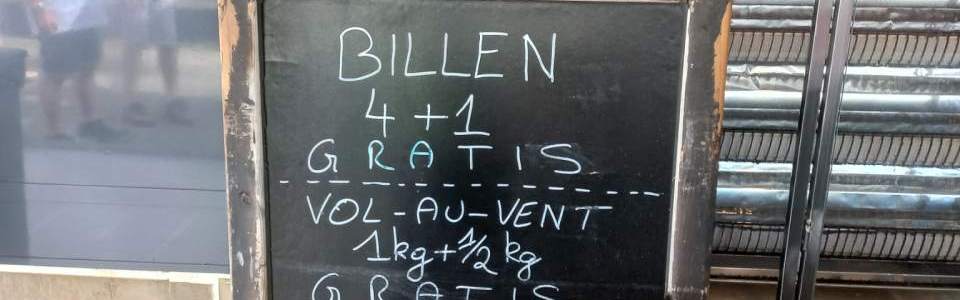 BILLEN
4 + 1
GRATIS
VOL-AU-VENT
1kg + 1/2 kg
GRATIS